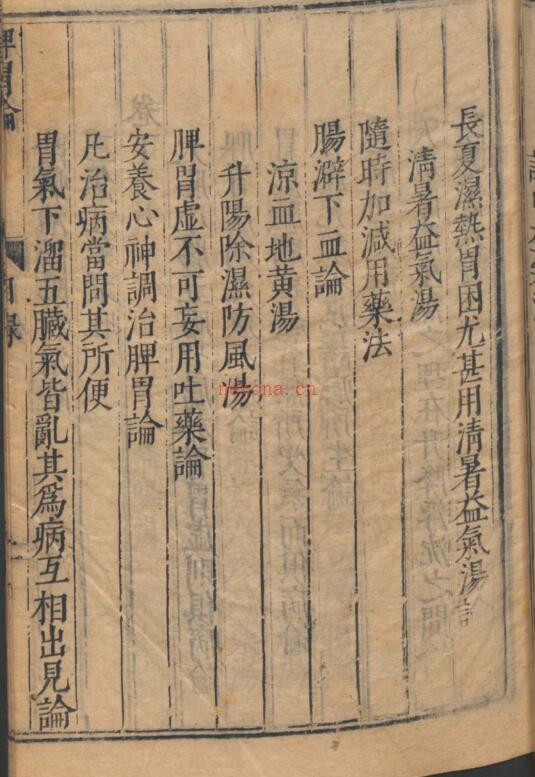 長夏濕熱胃困尤甚用清暑益氣湯論
清暑益氣湯
隨時加減用藥法
腸澼下血論
涼血地黃湯
升陽除濕防風湯
脾胃虛不可妄用吐藥論
安養心神調治脾胃論
凡治病當問其所便
胃氣下溜五臟氣皆亂其爲病互相出見論
脾胃論
目錄
nayona.cn